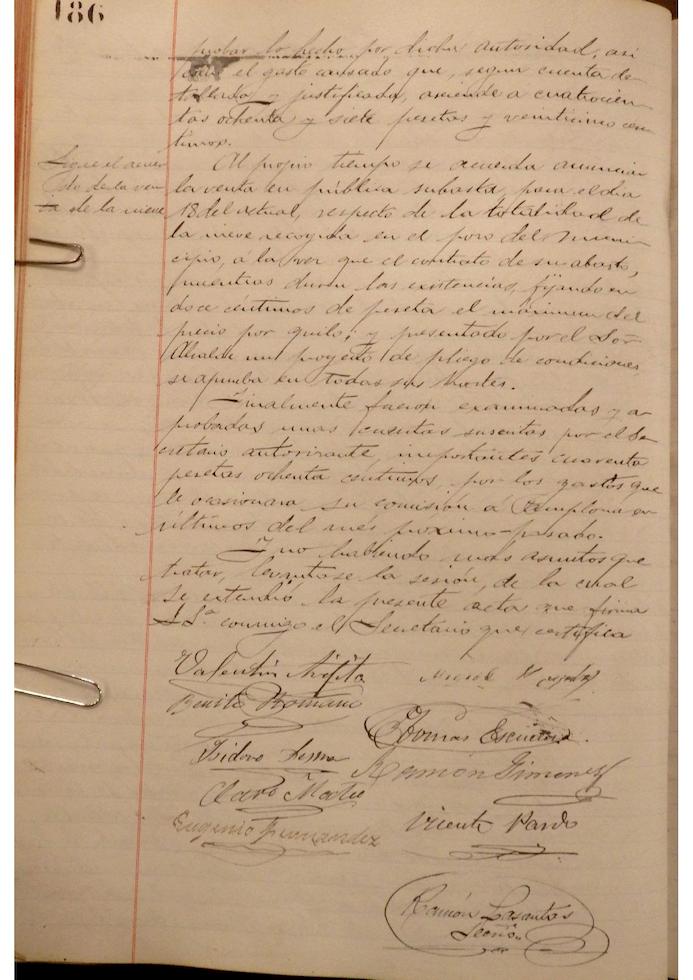 186
probar lo hecho por dicha autoridad, así
como el gasto causado que, según cuenta de-
tallada y justificada, asciende a cuatrocien-
tas ochenta y siete pesetas y veinticinco cén-
timos.
Sigue el acuer
do de la ven
ta de la nieve
Al propio tiempo se acuerda anunciar
la venta en pública subasta, para el día
18 del actual, respecto de la totalidad de
la nieve recogida en el pozo del Muni-
cipio, á la vez que el contrato de su abasto,
mientras duren las existencias, fijando en
doce céntimos de peseta el máximum del
precio por quilo; y presentado por el Sor
Alcalde un proyecto de pliego de condiciones,
se aprueba en todas sus partes.
Finalmente fueron examinadas y a-
probadas unas cuentas suscritas por el Se-
cretario autorizante, importantes cuarenta
pesetas ochenta céntimos, por los gastos que
le ocasionara su comisión á Pamplona en
últimos del mes próximo-pasado.
Y no habiendo mas asuntos que
tratar, levantose la sesión, de la cual
se extendió la presente acta que firma
S.Sª conmigo el Secretario que certifica
Valentín
Benito Romano
Tomás Escudero.
Isidoro Lerma
Ramón Gimenez
Claro Mateo
Eugenio Fernandez
Vicente Pardo
Ramón Lasantas
Secrio.